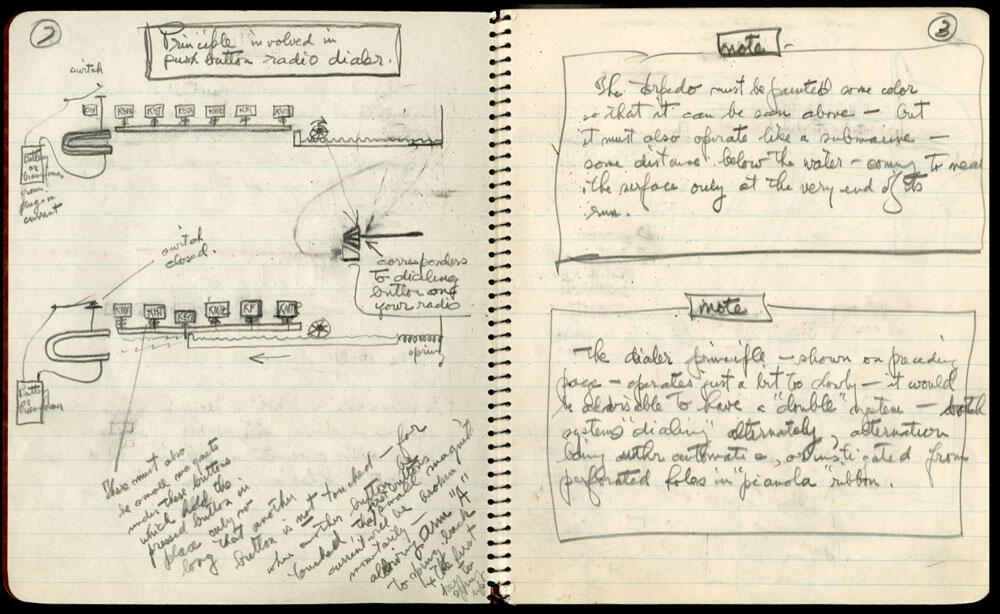 2
Principle involved in
push button radio dialer.
switch
battery or
transformer
from
plug in
current
switch
closed.
corresponders
to dialing
button on
your radio
spring
There must also
be small magnets
under these buttons
which hold the
pressed button in
place only so
long that another
button is not touched — for
when another button is
touched the
current will be broken
momentarily —
allowing arm "A"
to spring back
+ the first
key to
spring
up
3
note
The torpedo must be painted some color
so that it can be seen above — but
it must also operate like a submarine —
some distance below the water — coming to near
the surface only at the very end of its
run.
note
The dialer principle — shown on preceding
page — operates just a bit too slowly — it would
be advisable to have a "double" system — both
systems "dialing" alternately, alternation
being either automatic, or instigated from
perforated holes in "pianola" ribbon.